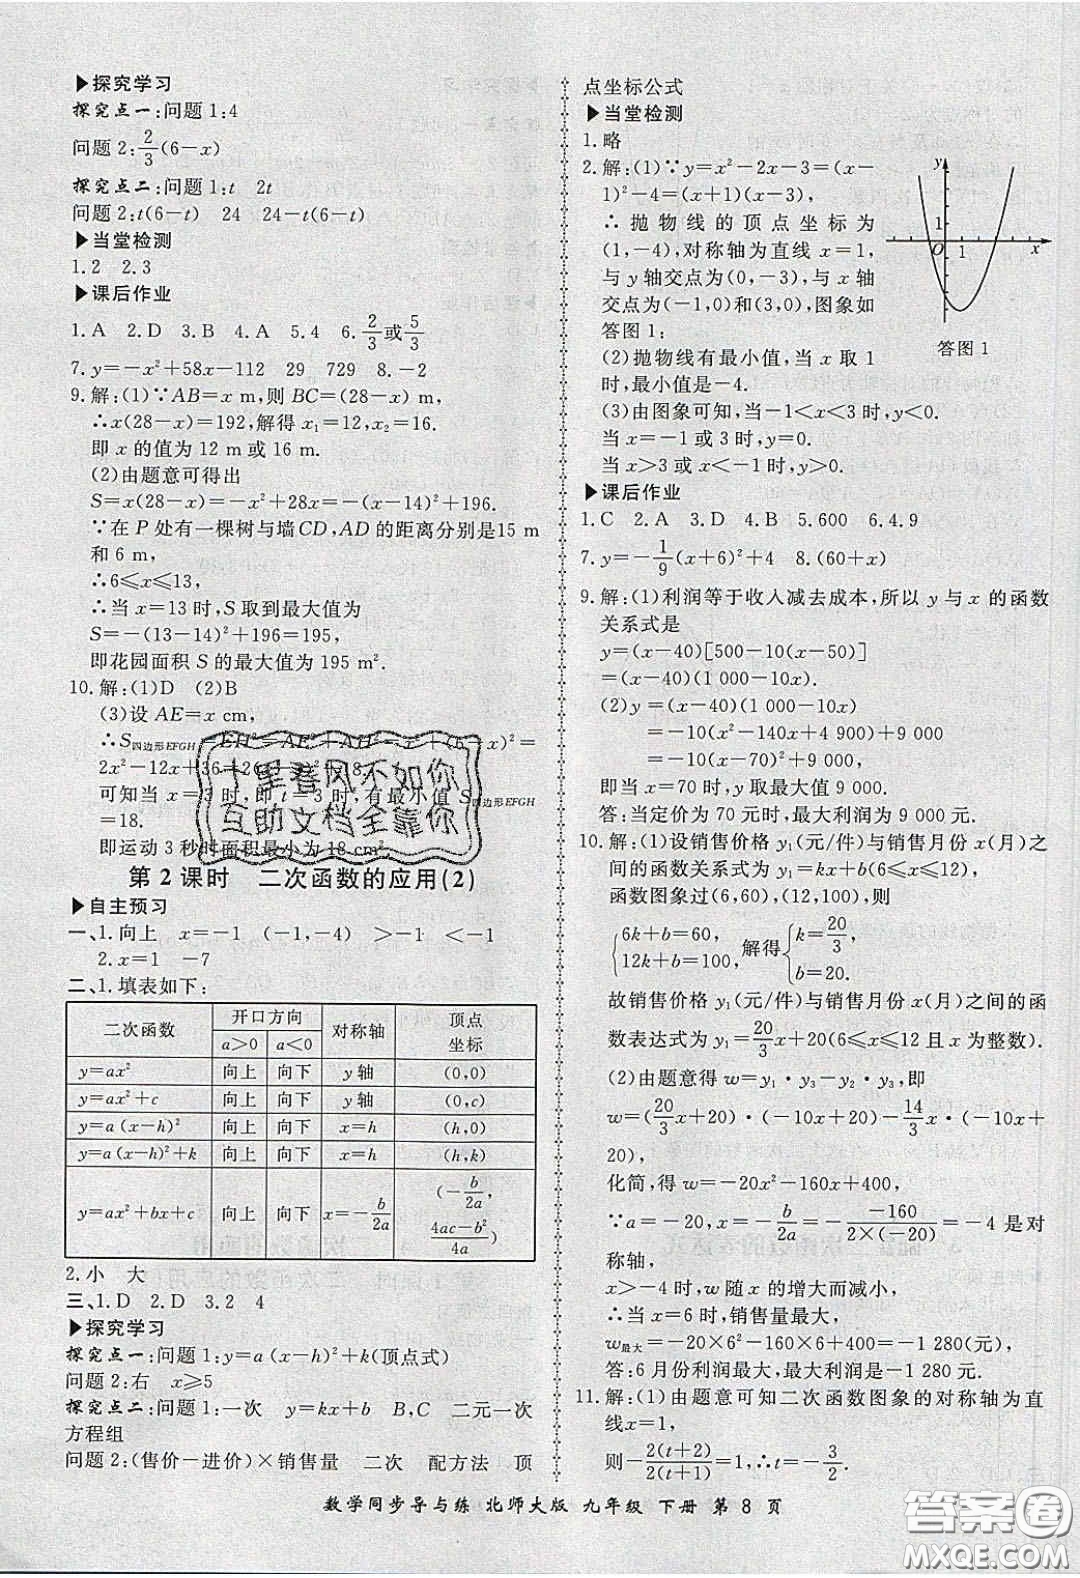 ▶探究学习
探究点一:问题1:4
问题2:2/3(6-x)
探究点二:问题1:t 2t
问题2:t(6-t) 24 24-t(6-t)
▶当堂检测
1.2 2.3
▶课后作业
1.A 2.D 3.B 4.A 5.4 6.2/3或5/3
7.y=-x²+58x-112 29 729 8.-2
9.解:(1)∵AB=x m,则BC=(28-x) m,
∴x(28-x)=192,解得x₁=12,x₂=16.
即x的值为12 m或16 m.
(2)由题意可得出
S=x(28-x)=-x²+28x=-(x-14)²+196.
∵在P处有一棵树与墙CD,AD的距离分别是15 m
和6 m,
∴6≤x≤13,
∴当x=13时,S取到最大值为
S=-(13-14)²+196=195,
即花园面积S的最大值为195 m².
10.解:(1)D (2)B
(3)设AE=x cm,
∴S四边形EFGH=EH²=AE²+AH²=x²+(6-x)²=
2x²-12x+36=
可知当x=3时,即t=3时,有最小值S四边形EFGH
=18.
即运动3秒时面积最小为18 cm².
十里春风不如你
互助文档全靠你
第2课时 二次函数的应用(2)
▶自主预习
一、1.向上 x=-1 (-1,-4) >-1 <-1
2.x=1 -7
二、1.填表如下:
二次函数 开口方向 对称轴 顶点坐标
a>0 a<0
y=ax² 向上 向下 y轴 (0,0)
y=ax²+c 向上 向下 y轴 (0,c)
y=a(x-h)² 向上 向下 x=h (h,0)
y=a(x-h)²+k 向上 向下 x=h (h,k)
y=ax²+bx+c 向上 向下 x=-b/2a (-b/2a, 4ac-b²/4a)
2.小 大
三、1.D 2.D 3.2 4
▶探究学习
探究点一:问题1:y=a(x-h)²+k(顶点式)
问题2:右 x≥5
探究点二:问题1:一次 y=kx+b B,C 二元一次
方程组
问题2:(售价-进价)×销售量 二次 配方法 顶
点坐标公式
▶当堂检测
1.略
2.解:(1)∵y=x²-2x-3=(x-
1)²-4=(x+1)(x-3),
∴抛物线的顶点坐标为
(1,-4),对称轴为直线x=1,
与y轴交点为(0,-3),与x轴
交点为(-1,0)和(3,0),图象如
答图1;
y
1
O 1 x
答图1
(2)抛物线有最小值,当x取1
时,最小值是-4.
(3)由图象可知,当-1<x<3时,y<0.
当x=-1或3时,y=0.
当x>3或x<-1时,y>0.
▶课后作业
1.C 2.A 3.D 4.B 5.600 6.4.9
7.y=-1/9(x+6)²+4 8.(60+x)
9.解:(1)利润等于收入减去成本,所以y与x的函数
关系式是
y=(x-40)[500-10(x-50)]
=(x-40)(1 000-10x).
(2)y=(x-40)(1 000-10x)
=-10(x²-140x+4 900)+9 000
=-10(x-70)²+9 000,
即当x=70时,y取最大值9 000.
答:当定价为70元时,最大利润为9 000元.
10.解:(1)设销售价格y₁(元/件)与销售月份x(月)之
间的函数关系式为y₁=kx+b(6≤x≤12),
函数图象过(6,60),(12,100),则
{6k+b=60, 12k+b=100, 解得{k=20/3, b=20.
故销售价格y₁(元/件)与销售月份x(月)之间的函
数表达式为y₁=20/3x+20(6≤x≤12且x为整数).
(2)由题意得w=y₁·x₃-y₂·y₃,即
w=(20/3x+20)·(-10x+20)-14/3x·(-10x+
20),
化简,得w=-20x²-160x+400,
∵a=-20,x=-b/2a=--160/2×(-20)=-4是对
称轴,
x>-4时,w随x的增大而减小,
∴当x=6时,销售量最大,
w最大=-20×6²-160×6+400=-1 280(元),
答:6月份利润最大,最大利润是-1 280元.
11.解:(1)由题意可知二次函数图象的对称轴为直
线x=1,
则-2(t+2)/2(t+1)=1,∴t=-3/2.
数学同步导与练 北师大版 九年级 下册 第8页
答案圈
MXQE.COM